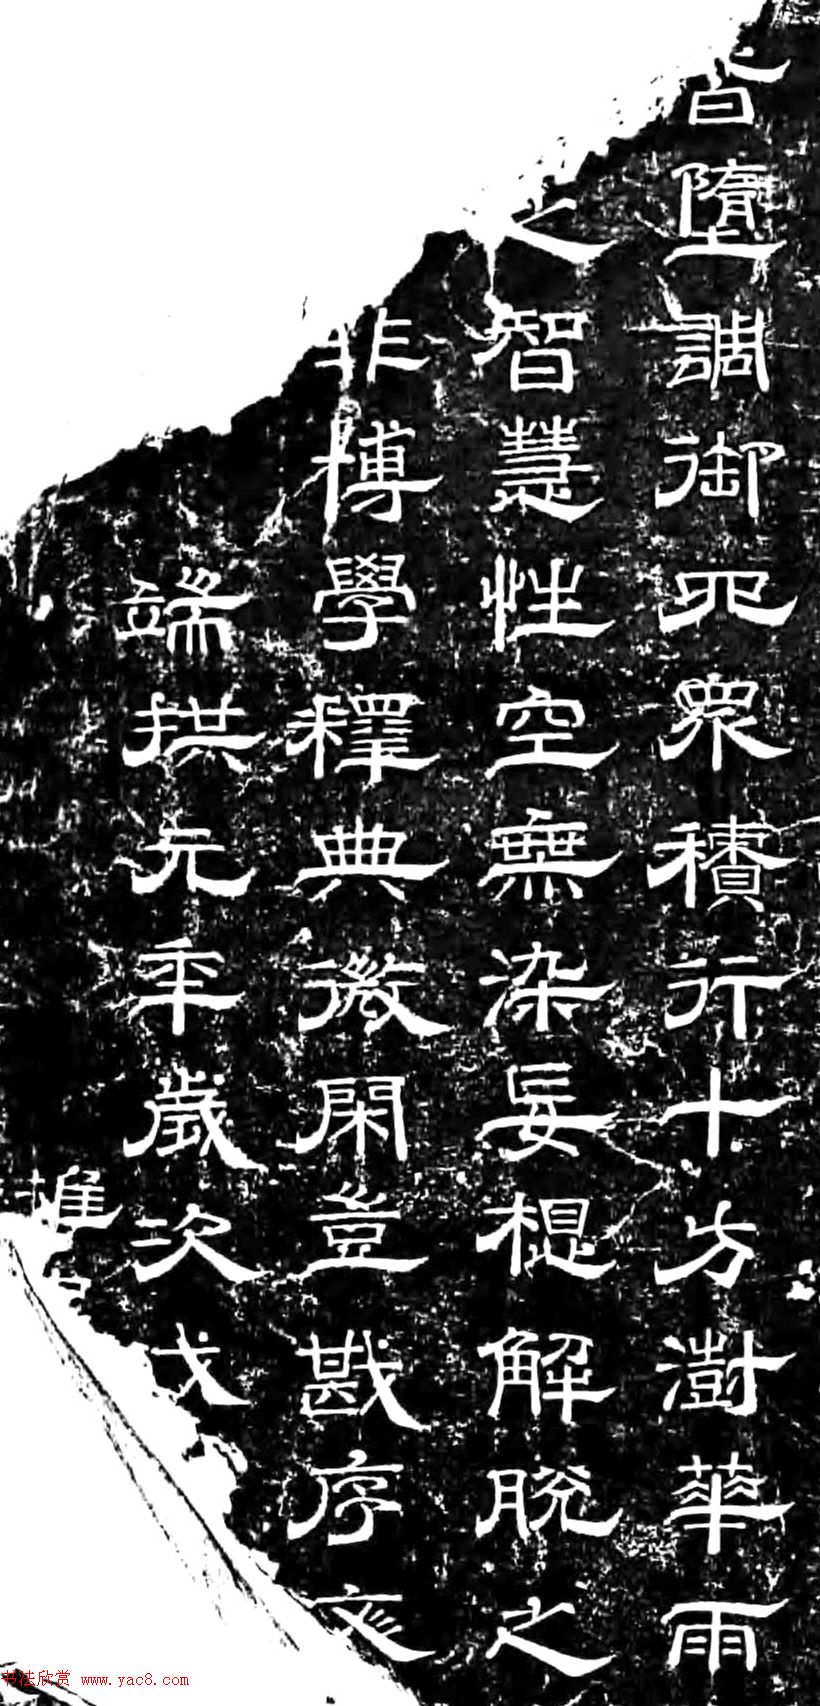 皆墮調御四眾積行十方澍華雨
之智慧性空無染妄想解脫之
非博學釋典微閑豈戡序文
端拱元年歲次戊
书法欣赏 www.yac8.com